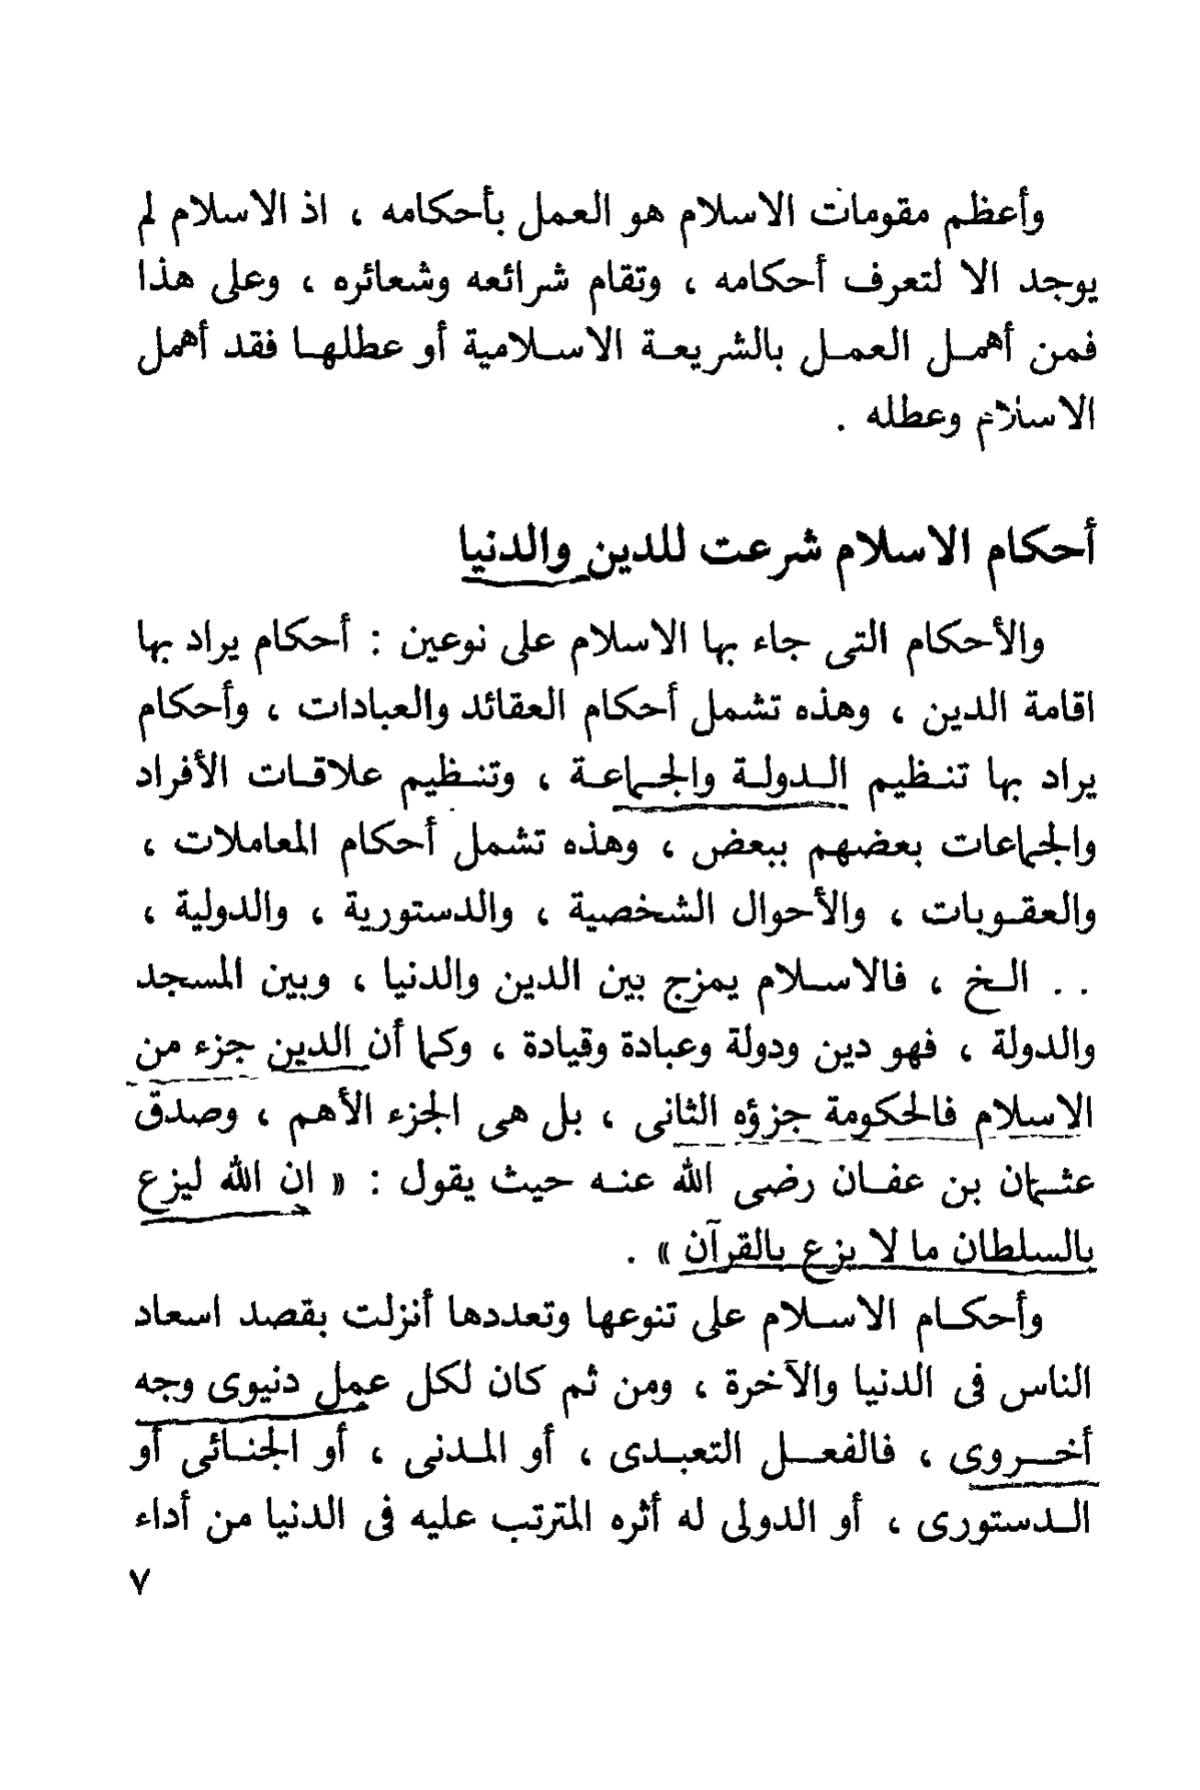 وأعظم مقومات الاسلام هو العمل بأحكامه ، اذ الاسلام لم
يوجد الا لتعرف أحكامه ، وتقام شرائعه وشعائره ، وعلى هذا
فمن أهمل العمل بالشريعة الاسلامية أو عطلها فقد أهمل
الاسلام وعطله .
أحكام الاسلام شرعت للدين والدنيا
والأحكام التى جاء بها الاسلام على نوعين : أحكام يراد بها
اقامة الدين ، وهذه تشمل أحكام العقائد والعبادات ، وأحكام
يراد بها تنظيم الدولة والجماعة ، وتنظيم علاقات الأفراد
والجماعات بعضهم ببعض ، وهذه تشمل أحكام المعاملات ،
والعقوبات ، والأحوال الشخصية ، والدستورية ، والدولية ،
. . الخ ، فالاسلام يمزج بين الدين والدنيا ، وبين المسجد
والدولة ، فهو دين ودولة وعبادة وقيادة ، وكما أن الدين جزء من
الاسلام فالحكومة جزؤه الثانى ، بل هى الجزء الأهم ، وصدق
عثمان بن عفان رضى الله عنه حيث يقول : « ان الله ليزع
بالسلطان ما لا يزع بالقرآن » .
وأحكام الاسلام على تنوعها وتعددها أنزلت بقصد اسعاد
الناس فى الدنيا والآخرة ، ومن ثم كان لكل عمل دنيوى وجه
أخروى ، فالفعل التعبدى ، أو المدنى ، أو الجنائى أو
الدستورى ، أو الدولى له أثره المترتب عليه فى الدنيا من أداء
٧